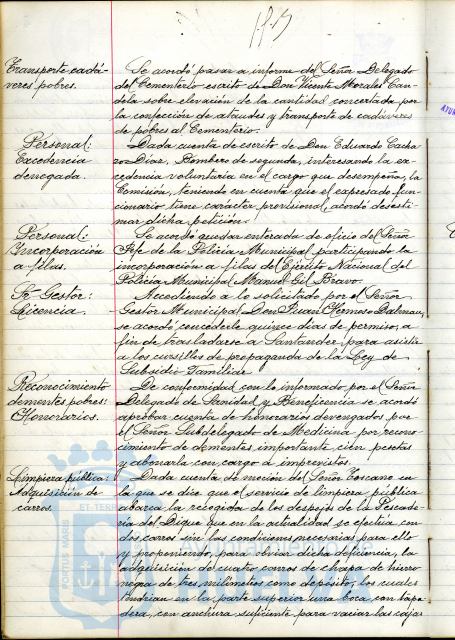 Transporte cadá-
veres pobres.
Se acordó pasar a informe del Señor Delegado
del Cementerio escrito de Don Vicente Morales Can-
dela sobre elevación de la cantidad concertada por
la confección de ataudes y transporte de cadáveres
de pobres al Cementerio.
Personal:
Excedencia
denegada.
Dada cuenta de escrito de Don Eduardo
Diaz, Bombero de segunda, interesando la ex-
cedencia voluntaria en el cargo que desempeña, la
Comisión, teniendo en cuenta que el expresado fun-
cionario tiene carácter provisional, acordó desesti-
mar dicha petición.
Personal:
Incorporación
a filas.
Se acordó quedar enterada de oficio del Señor
Jefe de la Policia Municipal participando la
incorporación a filas del Ejército Nacional del
Policia Municipal Manuel Gil Bravo.
Sr. Gestor:
Licencia.
Accediendo a lo solicitado por el Señor
Gestor Municipal Don Juan Hermoso Dalmau,
se acordó concederle quince dias de permiso, a
fin de trasladarse a Santander, para asistir
a los cursillos de propaganda de la Ley de
Subsidio Familiar
Reconocimiento
dementes pobres:
Honorarios.
De conformidad con lo informado por el Señor
Delegado de Sanidad y Beneficencia se acordó
aprobar cuenta de honorarios devengados por
el Señor Subdelegado de Medicina por recono-
cimiento de dementes, importante cien pesetas
y abonarla con cargo a imprevistos.
Limpieza pública:
Adquisición de
carros.
Dada cuenta de moción del Señor Toscano en
la que se dice que el servicio de limpieza pública
abarca la recogida de los despojos de la Pescade-
ria del Dique que en la actualidad se efectúa con
dos carros sin las condiciones necesarias para ello
y proponiendo, para obviar dicha deficiencia, la
adquisición de cuatro carros de chapa de hierro
negra de tres milímetros como depósito, los cuales
tendrian en la parte superior una boca con tapa-
dera, con anchura suficiente para vaciar las cajas
PORTUS MARIS
ET TERRAE